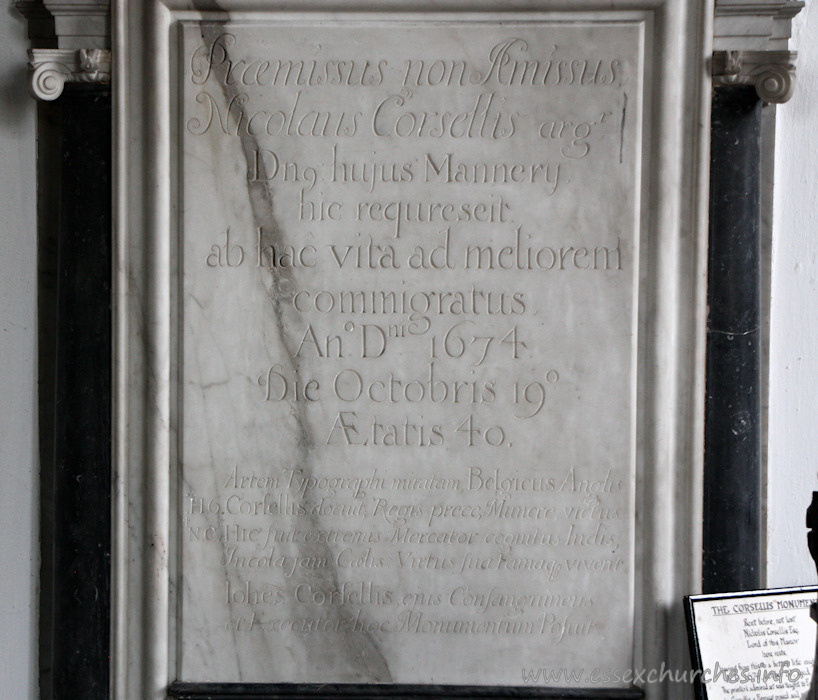 Præmissus non Æmissus,
Nicolaus Corsellis argr
Dn9 hujus Mannery
hic requrescit
ab hac vita ad meliorem
commigratus
Ano Dni 1674
Die Octobris 19o
Ætatis 40.
Artem Typographi miratam, Belgicus Anglis
Corsellis docuit, Regis prece, Munere victus
N.C. Hic fuit extremis Mercator cognitus Indis,
Incola jam Cœlis: Virtus sua famaq vivent
Iohes Corsellis, ejus Consanguineus
et Executor hoc Monumentum Posuit
THE CORSELLIS MONUMENT
Sent before, not lost
Nicholas Corsellis Esq.
Lord of this Manor
here rests,
www.essexchurches.info